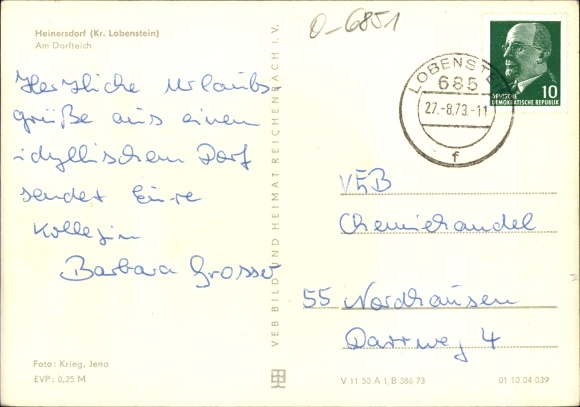 Heinersdorf (Kr. Lobenstein)
Am Dorfteich
Herzliche Urlaubs
grüße aus einem
idyllischen Dorf
sendet Eu-re
Kollegin
Barbara Grosser
Foto: Krieg, Jena
EVP: 0,25 M
VEB BILD UND HEIMAT REICHENBACH I. V.
O-6851
LOBENSTEIN
685
27.-8.73.-11
f
10
DEUTSCHE
DEMOKRATISCHE REPUBLIK
VEB
Chemiehandel
55 Nordhausen
Darrweg 4
V 11 50 A 1 B 386 73
01 10 04 039